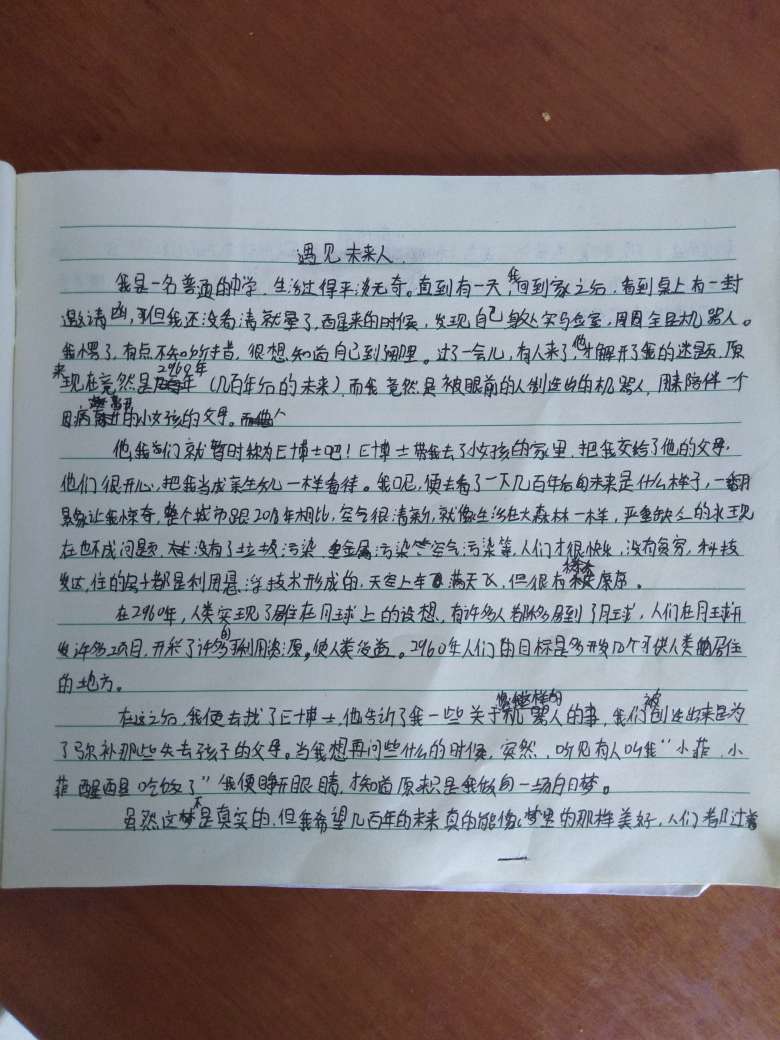 遇见未来人
我是一名普通的中学,生活过得平淡无奇。直到有一天,我回到家之后,看到桌上有一封
邀请函,但我还没看清就晕了,西星来的时候,发现自己身处实验室,周围全是机器人。
我愣了,有点不知所措,很想知道自己到哪哩。过了一会儿,有人来了,他才解开了我的迷题,原
来现在竟然是2960年(几百年后的未来),而我竟然是被眼前的人制造出的机器人,用来陪伴一个
因病离开的小女孩的父母。
他,我们就暂时称为E博士吧!E博士带我去了小女孩的家里,把我交给了他的父母,
他们很开心,把我当成亲生女儿一样看待。我呢,便去看了一下几百年后的未来是什么样子,一番
景象让我惊奇,整个城市跟2018年相比,空气很清新,就像生活在大森林一样,严重缺乏的水现
在也不成问题,没有了垃圾污染,重金属污染空气污染等,人们才很快乐,没有贫穷,科技
发达,住的房子都是利用悬浮技术形成的,天空上车满天飞,但很有秩序。
在2960年,人类实现了居住在月球上的设想,有许多人都移居到了月球,人们在月球开
发许多项目,开采了许多可利用的资源。使人类受益。2960年人们的目标是多开发几个可供人类居住
的地方。
在这之后,我便去找了E博士,他告诉了我一些关于像我这样的机器人的事,我们被创造出来是为
了弥补那些失去孩子的父母。当我想再问些什么的时候,突然,听见有人叫我"小菲,小
菲醒醒吃饭了"我便睁开眼睛,才知道原来只是我做的一场白日梦。
虽然这梦不是真实的,但我希望几百年的未来真的能像梦里的那样美好,人们都过着